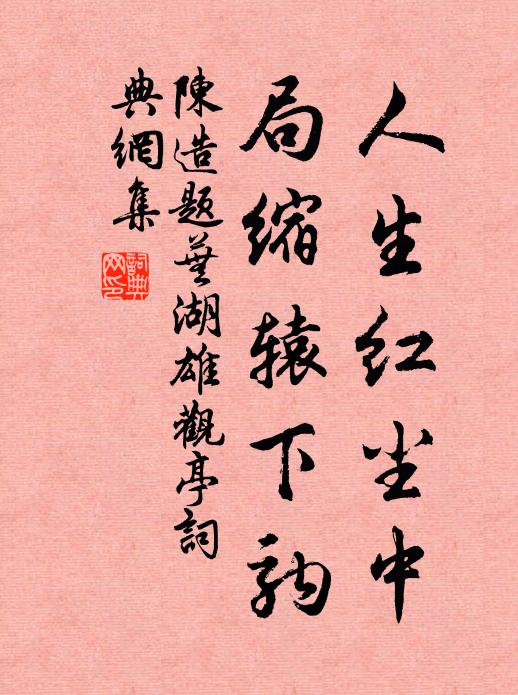 人生红尘中
局缩辕下驹
陳造題蕪湖雄觀亭詞
典網集
詞典網印